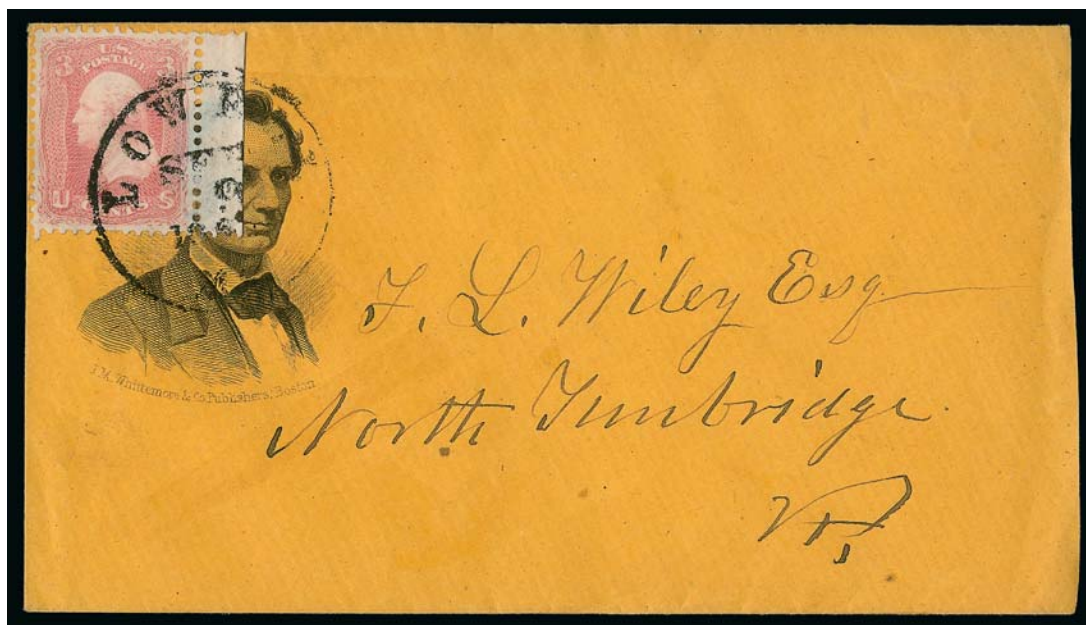 3 U.S. 3
POSTAGE
U CENTS S
LOWE
J.M. Whittemore & Co. Publishers, Boston
F. L. Wiley Esq
North Tunbridge.
Vt,